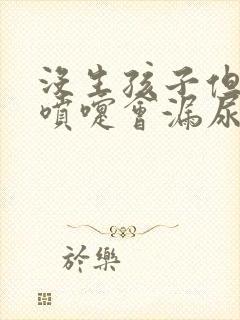 沒生孩子但
噴嚏會漏尿
於樂